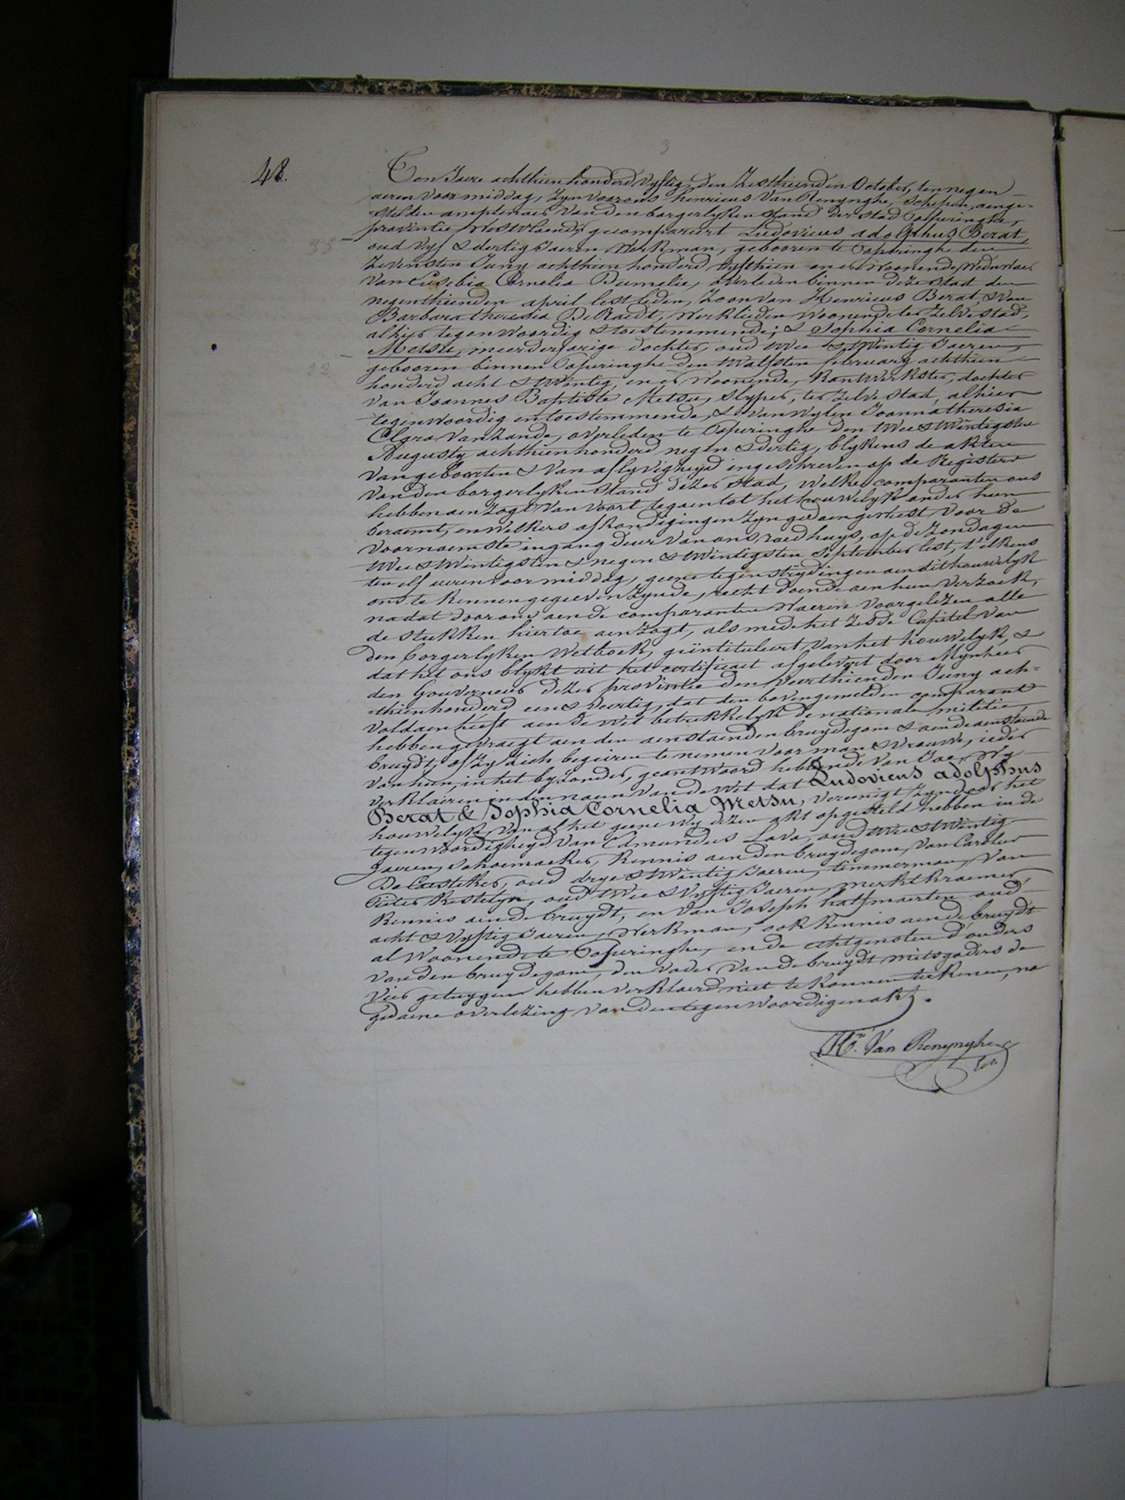 48.
Ten Jaere achthien honderd vyftig, den Zesthienden October, ten negen
ueren voormiddag, Zyn voor ons henricus Van Renynghe, Schepen, aenge-
stelden amptenaer van den borgerlyken stand der stad Poperinghe,
provintie Westvlaend: gecompareert Ludovicus adolphus Berat,
35
oud vyf & dertig Jaeren, Werkman, gebooren te Poperinghe den
Zevensten Juny achthien honderd vyfthien en er woonende, Weduwaer
van Eusebia Cornelia Demelie, overleden binnen deze stad den
negenthienden april lest leden, zoon van Henricus Berat, & van
Barbara theresia De Raedt, Werklieden woonende ter Zelve stad,
alhier tegenwoordig & toestemmende; & Sophia Cornelia
Metsu, meerderjarige dochter, oud twee & twintig Jaeren,
22
gebooren binnen Poperinghe den twalfsten february achthien
honderd acht & twintig, en er woonende, Kantwerkster, dochter
van Joannes Baptiste Metsu, slyper, ter zelve stad, alhier
tegenwoordig en toestemmende, & van wylen Joanna theresia
Clara Van Zande, overleden te Poperinghe den twee & twintigsten
Augusty achthien honderd negen & dertig, blykens de akten
van geboorten & van aflyvigheyd ingeschreven op de Registers
van den borgerlyken stand dezer stad, welke comparanten ons
hebben aenzogt van voort te gaen tot het houwelyk onder hun
beraemt, en welkers afkondigingen zyn gedaen geweest voor de
voornaemste ingang deur van ons raedhuys, op de Zondagen
twee & twintigsten & negen & twintigsten September lest, t'elkens
ten elf ueren voormiddag, geene tegenstrydingen aen dit houwelyk
ons te kennen gegeven zynde, recht doende aen hun verzoek,
na dat door ons aen de comparanten waeren voorgelezen alle
de stukken hiertoe aenzogt, als mede het Zesde Capitel van
den borgerlyken Wetboek, geïntituleert, van het houwelyk, &
dat het ons blykt uit het certificaet afgelevert door Mynheer
den Gouverneur dezer provintie den veerthienden Juny ach-
thien honderd een & veertig, dat den bovengemelden comparant
voldaen heeft aen de Wet betrekkelyk de nationale militie,
hebben gevraegt aen den aenstaenden bruydegom & aen de aenstaende
bruydt, of zy zich begeiren te nemen voor man & vrouwe, ieder
van hun, in het byzonder, geantwoord hebbende van Jae, Wy
verklaeren in den naem van de Wet dat Ludovicus adolphus
Berat & Sophia Cornelia Metsu, vereenigt zyn door het
houwelyk van al het geene wy dezen akt opgesteld hebben in de
tegenwoordigheyd van Edmundus Lava, oud twee & twintig
Jaeren, schoemaeker, Kennis aen den bruydegom, van Carolus
oud drye & twintig Jaeren, timmerman, van
Pieter Kestelyn, oud twee & vyftig Jaeren, merktkraemer,
Kennis aen de bruydt, en van Joseph halsmaerten oud
acht & vyftig Jaeren, Werkman, ook kennis aen de bruydt
al woonende te Poperinghe, en de echtgenoten d'ouders
van den bruydegom, den vader van de bruydt mitsgaders de
vier getuygen hebben verklaerd niet te konnen teekenen, na
gedaene overlezing van den tegenwoordigen akt.
Hri. Van Renynghe